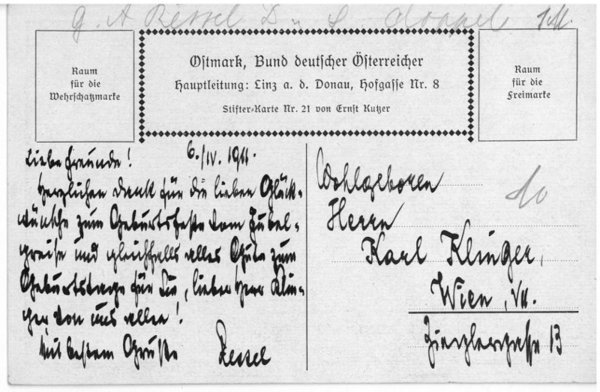 G. A. Ressel L. u. S. doppel 1M.
Raum
für die
Wehrschatzmarke
Ostmark, Bund deutscher Österreicher
Hauptleitung: Linz a. d. Donau, Hofgasse Nr. 8
Stifter-Karte Nr. 21 von Ernst Kutzer
Raum
für die
Freimarke
Liebe Freunde! 6./IV. 1911.
Herzlichen Dank für die lieben Glück-
wünsche zum Geburtsfeste vom Jubel-
greise und gleichfalls alles Gute zum
Geburtstage für Sie, lieber Herr Klin-
ger von uns allen!
Mit bestem Gruße Ressel
Wohlgeboren
Herrn
Karl Klinger,
Wien, VII.
Zieglergasse 13
10